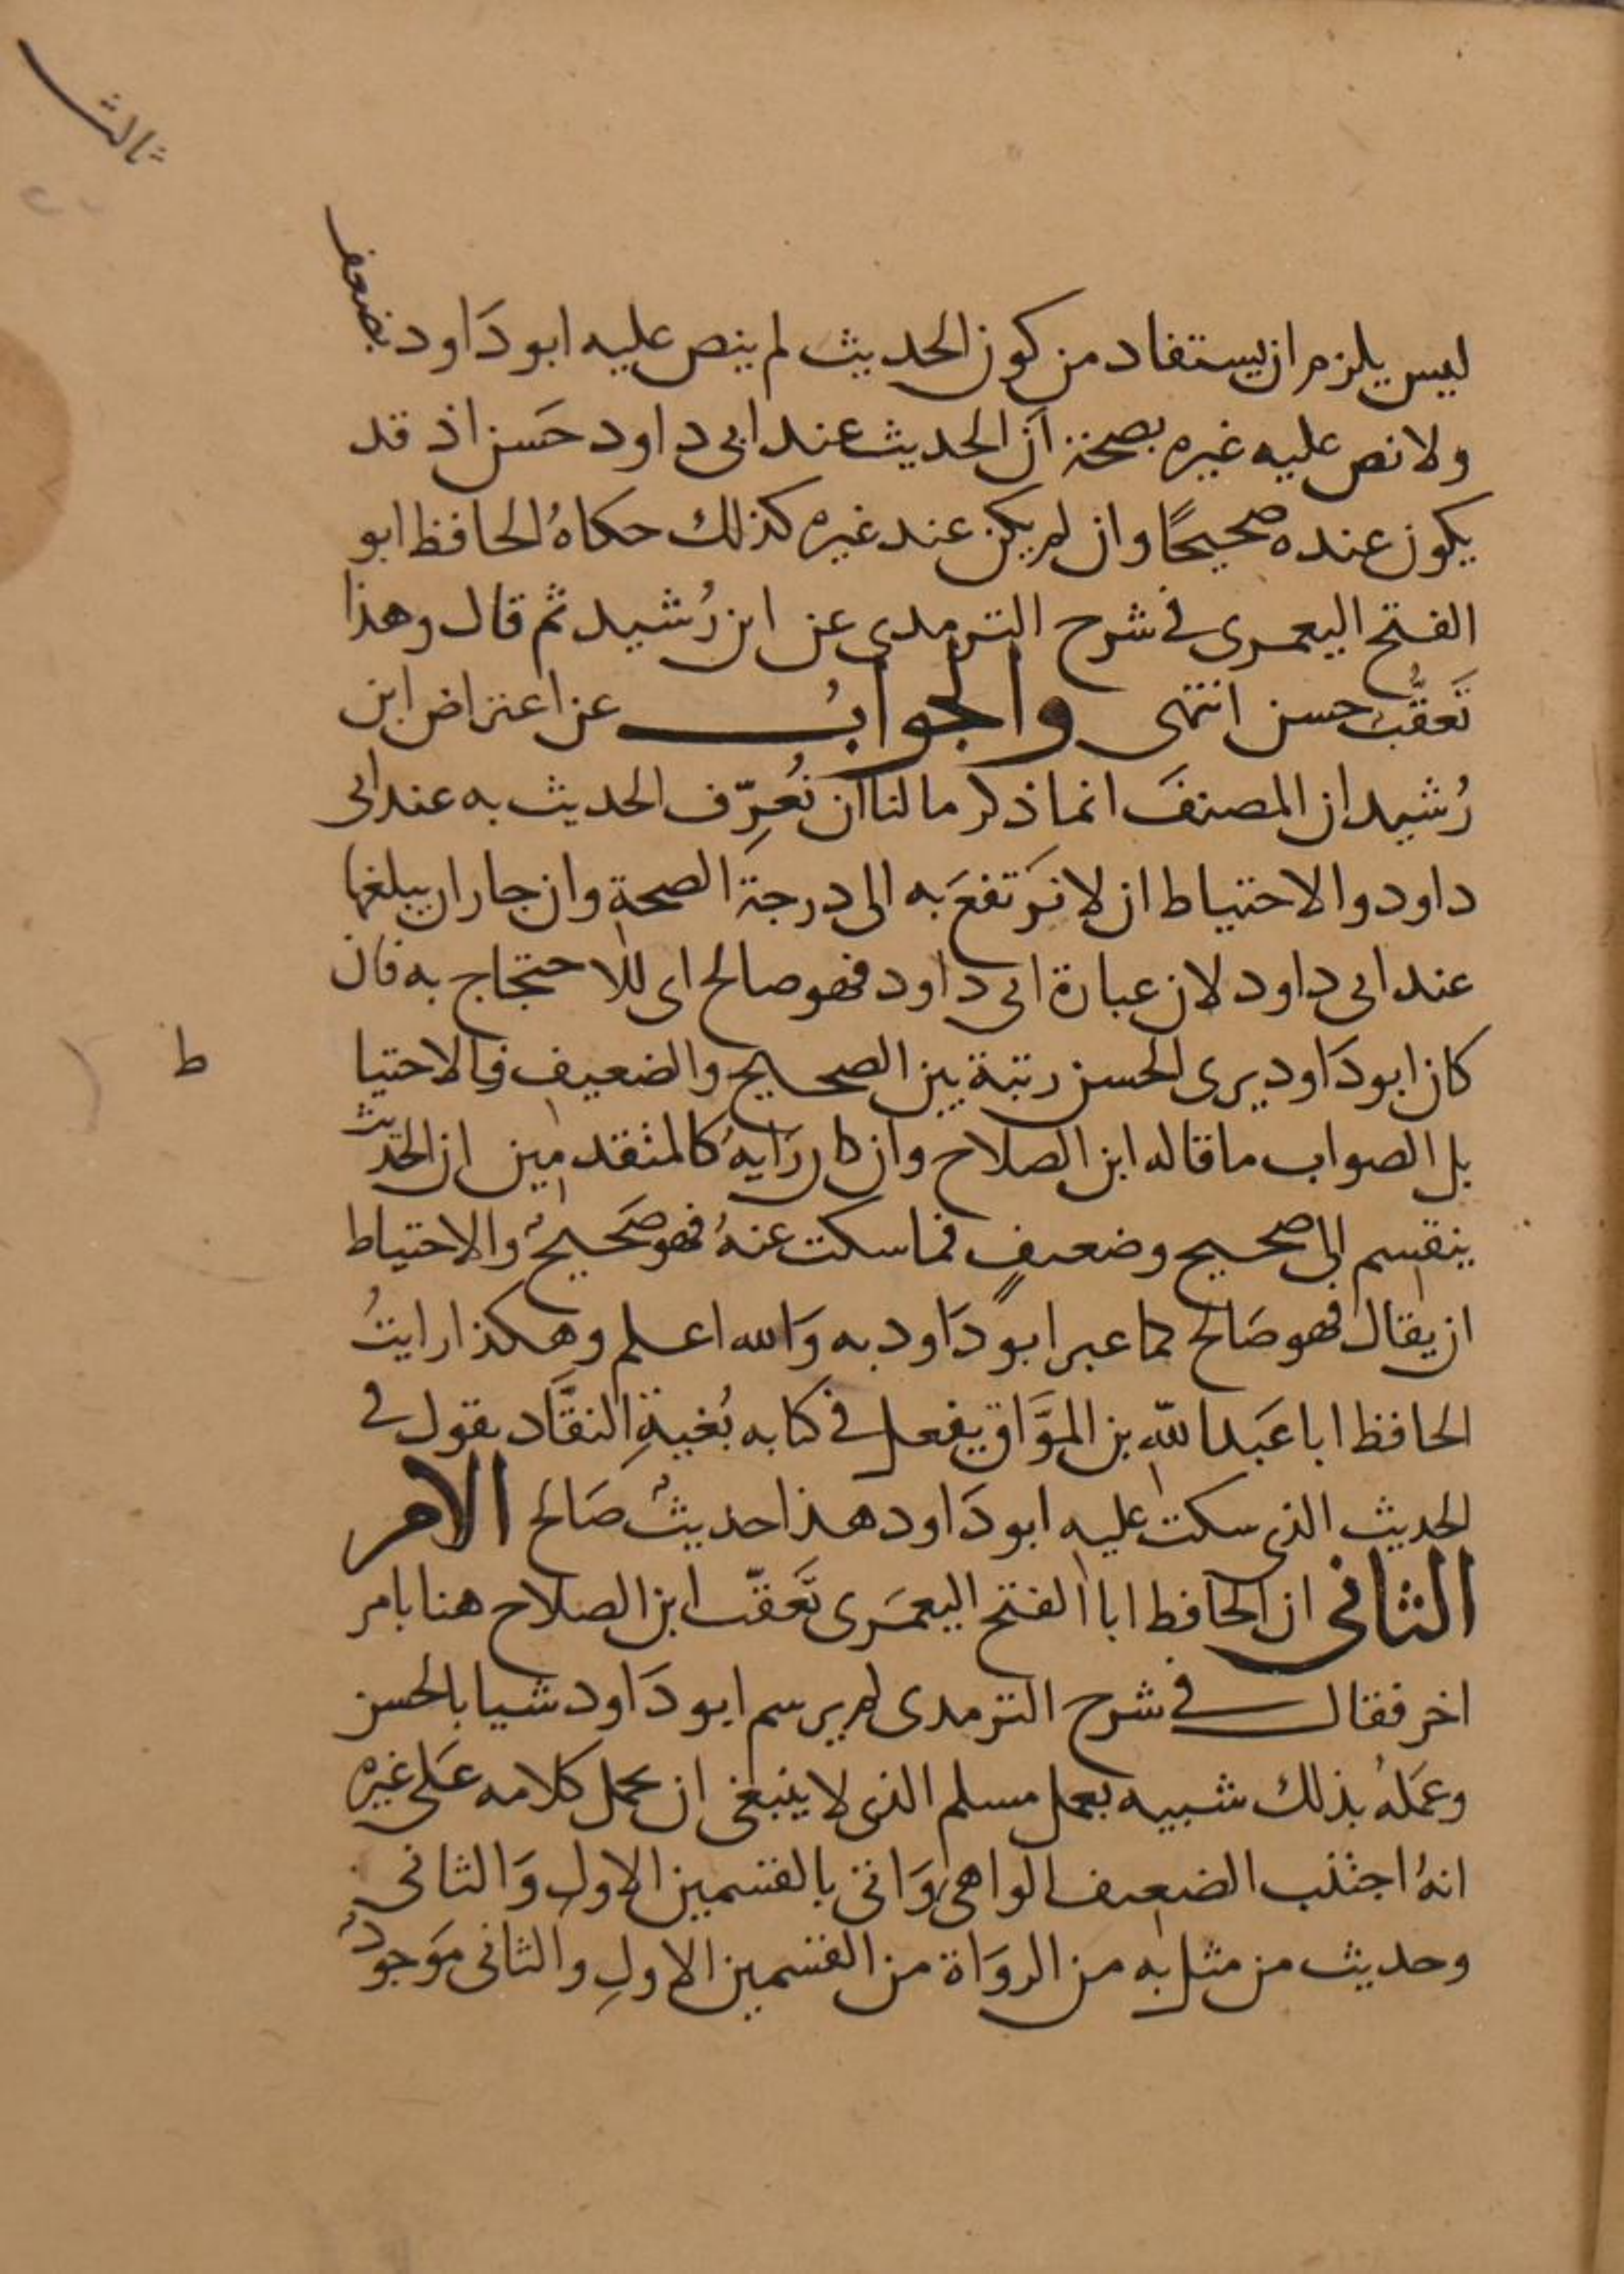 ثالث
ليس يلزم ان يستفاد من كون الحديث لم ينص عليه ابو دَاود بضعف
ولا نص عليه غيره بصحة أن الحديث عند ابى داود حَسن اذ قد
يكون عنده صحيحًا وان لم يكن عند غيره كذلك حكاهُ الحافظ ابو
الفتح اليعمرى فى شرح الترمدى عن ابن رُشيد ثم قال وهذا
تَعقُّب حسن انتهى والجوابُ عن اعتراض ابن
رُشيد ان المصنفَ انما ذكر ما لنا أن نُعرِّف الحديث به عند ابى
داود والاحتياط ان لا نَرتفعَ به الى درجة الصحة وان جاز ان يبلغها
عند ابى داود لان عبارة ابى داود فهو صالح اى للاحتجاج به فان
كان ابو دَاود يرى الحسن رتبة بين الصحيح والضعيف فالاحتيا
ط
بل الصواب ما قاله ابن الصلاح وان كان رَايهُ كالمتقدمين ان الحديث
ينقسم الى صحيح وضعيفٍ فما سكت عنهُ فهو صَحيحٌ والاحتياط
ان يقال فهو صَالح كما عبر ابو دَاود به وَالله اعلم وهكذا رايتُ
الحافظ ابا عَبد الله بن الموَّاق يفعل فى كتابه بُغيةِ النقَّاد يقول فى
الحديث الذى سكت عليه ابو دَاود هذا حديثٌ صَالح الامر
الثانى ان الحافظ ابا الفتح اليعمَرى تَعقّب ابن الصلاح هنا بامر
اخر فقال فى شرح الترمدى لم يرسم ابو دَاود شيا بالحسن
وعَملهُ بذلك شبيه بعمل مسلم الذى لا ينبغى ان يحمل كلامه عَلى غيره
انهُ اجتنب الضعيف الواهى وَاتى بالقسمين الاول وَالثانى
وحديث من مثل به من الروَاة من القسمين الاولِ والثانى مَوجودٌ